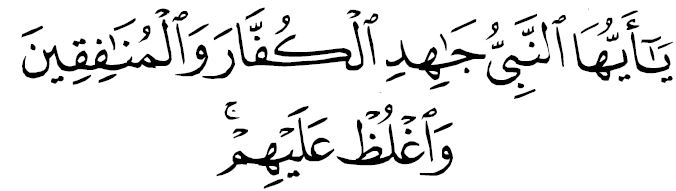 يَـٰٓأَيُّهَا ٱلنَّبِىُّ جَـٰهِدِ ٱلْكُفَّارَ وَٱلْمُنَـٰفِقِينَ
وَٱغْلُظْ عَلَيْهِمْ ۚ